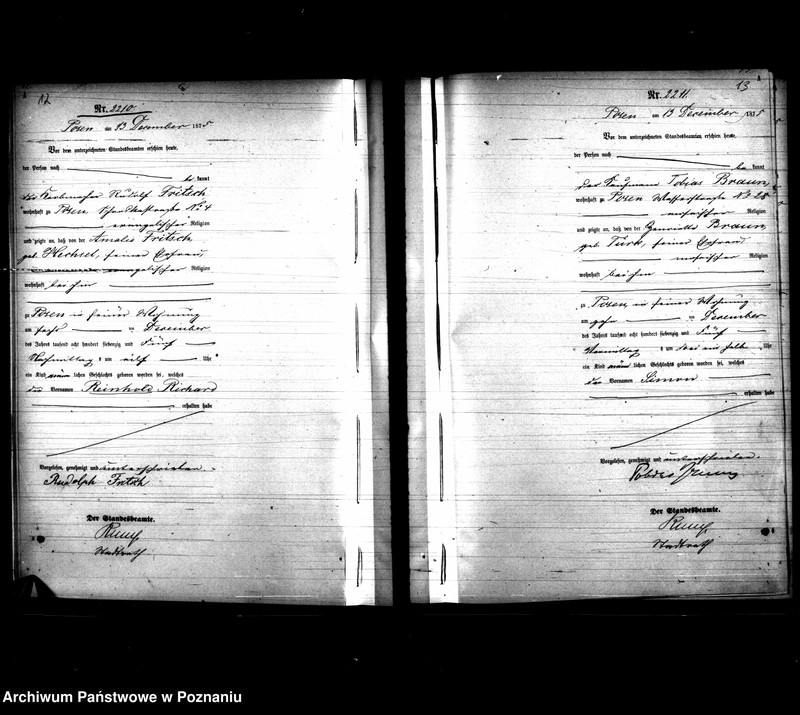 12
Nr. 2210.
Posen am 13 December 1875
Vor dem unterzeichneten Standesbeamten erschien heute,
der Person nach
be kannt
der Rudolf Fritsch
wohnhaft zu Posen No 4
evangelischer Religion
und zeigte an, daß von der Amalie Fritsch
geb. seiner Ehefrau
evangelischer Religion
wohnhaft bei ihm
zu Posen in seiner Wohnung
am December
des Jahres tausend acht hundert siebenzig und fünf
Nachmittag s um eilf Uhr
ein Kind männ lichen Geschlechts geboren worden sei, welches
die Vornamen Reinhold Richard
erhalten habe
Vorgelesen, genehmigt und unterschrieben.
Rudolph Fritsch
Der Standesbeamte.
Stadtrath
13
Nr. 2211.
Posen am 13 December 1875
Vor dem unterzeichneten Standesbeamten erschien heute,
der Person nach
be kannt
der Kaufmann Tobias Braun,
wohnhaft zu Posen Wasserstraße No 28
mosaischer Religion
und zeigte an, daß von der Henriette Braun,
geb. Türk, seiner Ehefrau
mosaischer Religion
wohnhaft bei ihm
zu Posen, in seiner Wohnung
am zehn December
des Jahres tausend acht hundert siebenzig und fünf
Vormittag s um drei ein halb Uhr
ein Kind männ lichen Geschlechts geboren worden sei, welches
den Vornamen Simon
erhalten habe
Vorgelesen, genehmigt und unterschrieben.
Tobias Braun
Der Standesbeamte.
Stadtrath
Archiwum Państwowe w Poznaniu